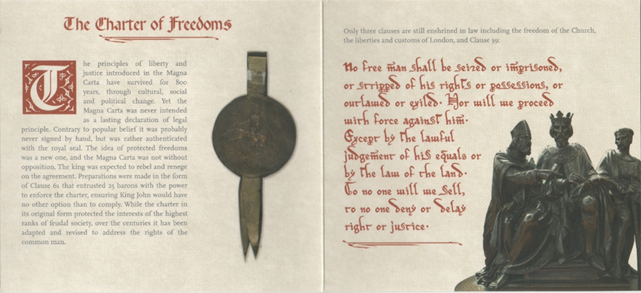 The Charter of Freedoms
The principles of liberty and
justice introduced in the Magna
Carta have survived for 800
years, through cultural, social
and political change. Yet the
Magna Carta was never intended
as a lasting declaration of legal
principle. Contrary to popular belief it was probably
never signed by hand, but was rather authenticated
with the royal seal. The idea of protected freedoms
was a new one, and the Magna Carta was not without
opposition. The king was expected to rebel and renege
on the agreement. Preparations were made in the form
of Clause 61 that entrusted 25 barons with the power
to enforce the charter, ensuring King John would have
no other option than to comply. While the charter in
its original form protected the interests of the highest
ranks of feudal society, over the centuries it has been
adapted and revised to address the rights of the
common man.
Only three clauses are still enshrined in law including the freedom of the Church,
the liberties and customs of London, and Clause 39:
No free man shall be seized or imprisoned,
or stripped of his rights or possessions, or
outlawed or exiled. Nor will we proceed
with force against him.
Except by the lawful
judgement of his equals or
by the law of the land.
To no one will we sell,
to no one deny or delay
right or justice.